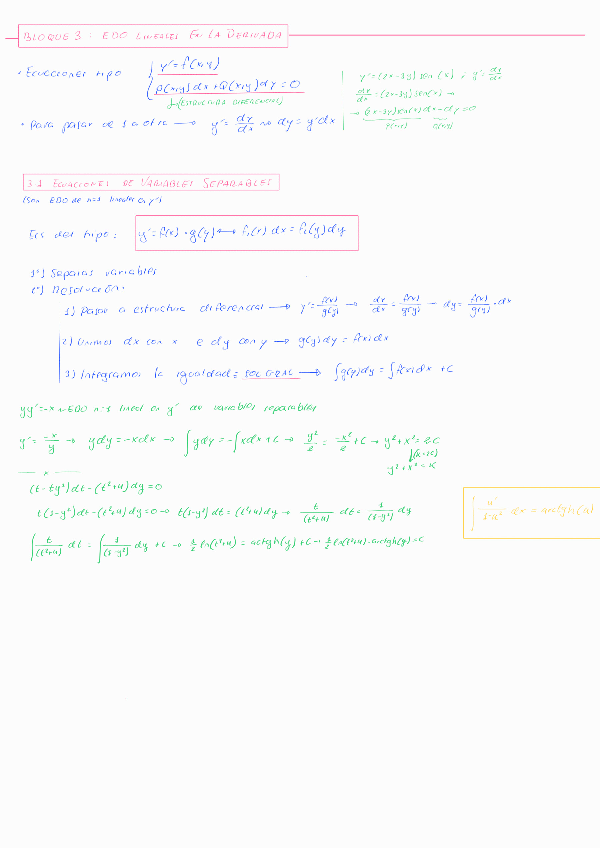 BLOQUE 3: EDO LINEALES EN LA DERIVADA
• Ecuaciones tipo { y' = f(x,y)
P(x,y)dx + Q(x,y)dy = 0
(ESTRUCTURA DIFERENCIAL)
y' = (2x-3y) sen(x) y' = dy/dx
dy/dx = (2x-3y) sen(x) →
→ (2x-3y)sen(x)dx - dy = 0
P(x,y) Q(x,y)
• Para pasar de 1 a otra → y' = dy/dx → dy = y'dx
3.1 ECUACIONES DE VARIABLES SEPARABLES
(Son EDO de n=1 lineales en y')
Ecs del tipo: y' = f(x)·g(y) ↔ f₁(x) dx = f₂(y)dy
1º) Separas variables
2º) Resolución:
1) Pasar a estructura diferencial → y' = f(x)/g(y) → dy/dx = f(x)/g(y) → dy = f(x)/g(y)·dx
2) Unimos dx con x e dy con y → g(y)dy = f(x)dx
3) Integramos la igualdad = SOL GRAL → ∫g(y)dy = ∫f(x)dx + C
yy' = -x → EDO n=1 lineal en y' de variables separables
y' = -x/y → ydy = -xdx → ∫ydy = -∫xdx + C → y²/2 = -x²/2 + C → y² + x² = 2C
(K=2C)
y² + x² = K
x
(t - ty²)dt - (t²+4)dy = 0
t(1-y²)dt - (t²+4)dy = 0 → t(1-y²)dt = (t²+4)dy → t/(t²+4) dt = 1/(1-y²) dy
∫ u'/(1-u²) dx = arctgh(u)
∫ t/(t²+4) dt = ∫ 1/(1-y²) dy + C → 1/2 ln(t²+4) = arctgh(y) + C → 1/2 ln(t²+4) - arctgh(y) = C